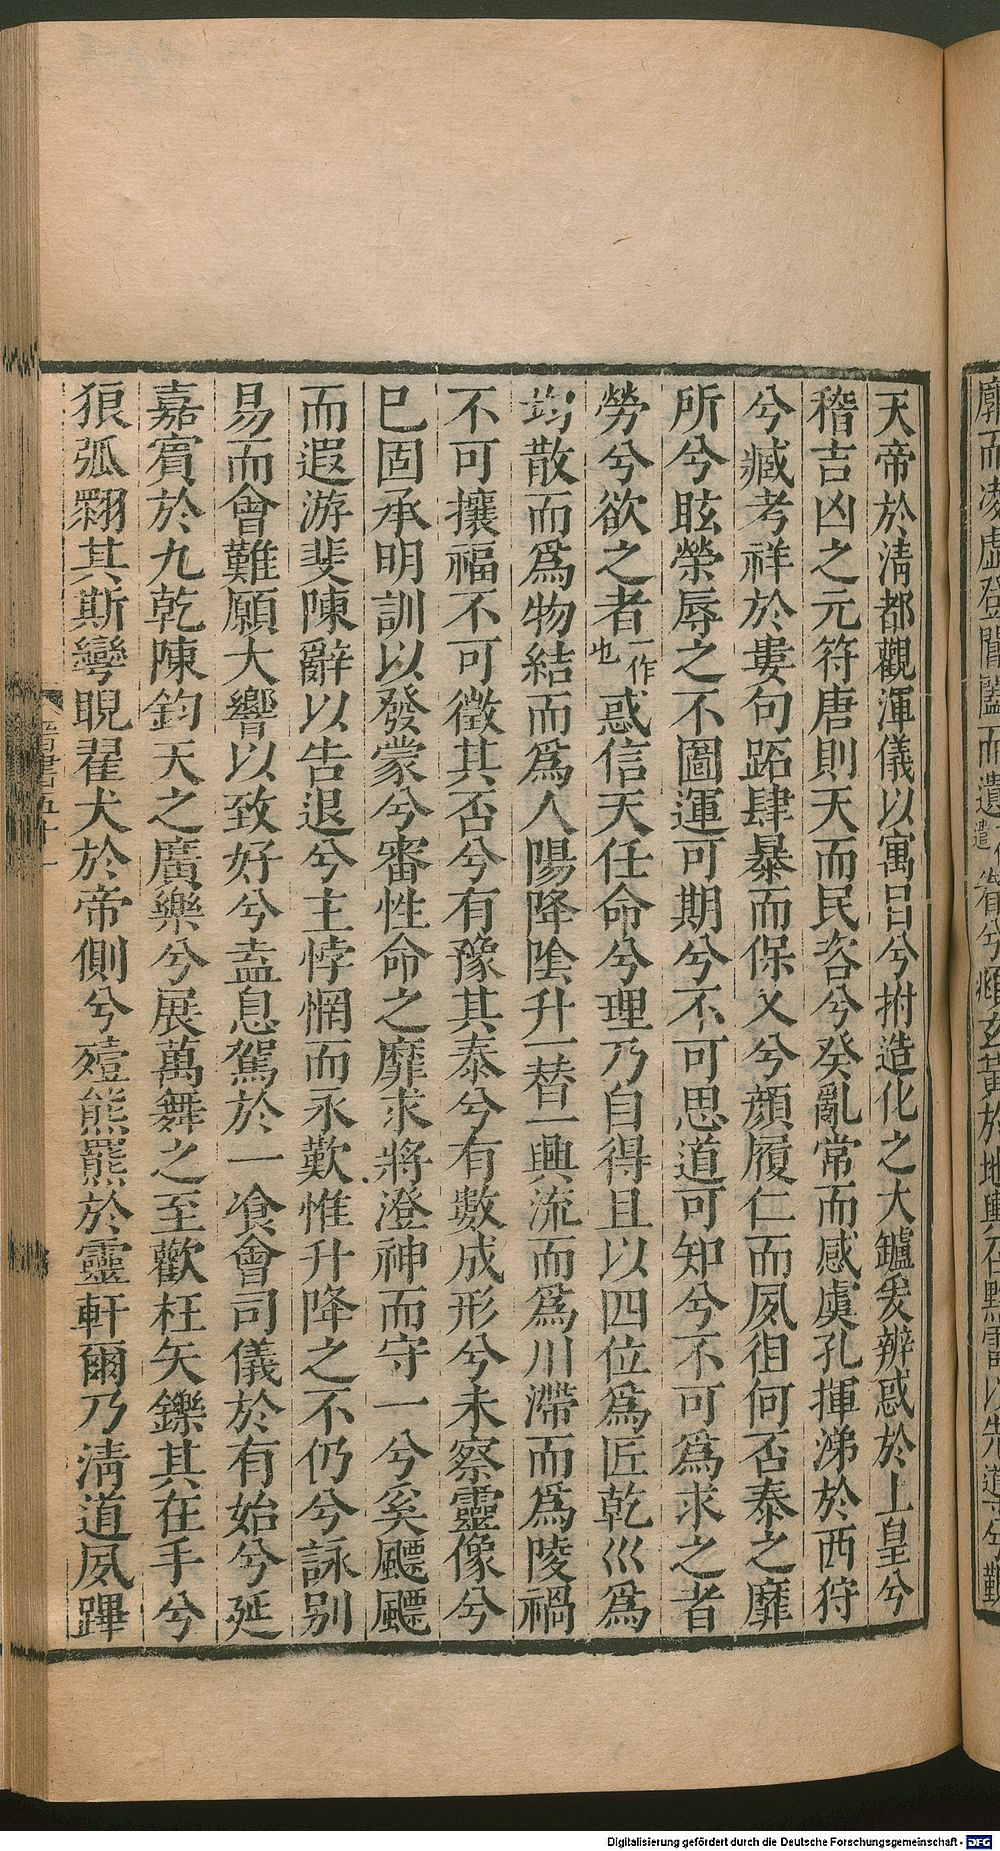 廓而凌虛登閶闔而遺
天帝於淸都觀渾儀以寓目兮拊造化之大鑪爰辨惑於上皇兮
稽吉凶之元符唐則天而民咨兮癸亂常而感虞孔揮涕於西狩
兮臧考祥於婁句跖肆暴而保乂兮顔履仁而夙徂何否泰之靡
所兮眩榮辱之不圖運可期兮不可思道可知兮不可爲求之者
勞兮欲之者一作也惑信天任命兮理乃自得且以四位爲匠乾巛爲
均散而爲物結而爲人陽降陰升一替一興流而爲川滯而爲陵禍
不可攘福不可徵其否兮有豫其泰兮有數成形兮未察靈像兮
巳固承明訓以發蒙兮審性命之靡求將澄神而守一兮奚颺颺
而遐游斐陳辭以告退兮主悖惘而永歎惟升降之不仍兮詠别
易而會難願大響以致好兮盍息駕於一飡會司儀於有始兮延
嘉賓於九乾陳鈞天之廣樂兮展萬舞之至歡枉矢鑠其在手兮
狼弧翾其斯彎睨翟犬於帝側兮殪熊羆於靈軒爾乃淸道夙蹕
晉書五十一
Digitalisierung gefördert durch die Deutsche Forschungsgemeinschaft - DFG